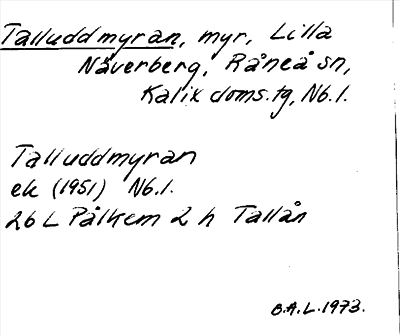 Talluddmyran, myr, Lilla
Näverberg, Råneå sn,
Kalix doms.tg, Nb.l.
Talluddmyran
ek (1951) Nb.l.
26 L Pålkem 2 h Tallån
B.A.L. 1973.